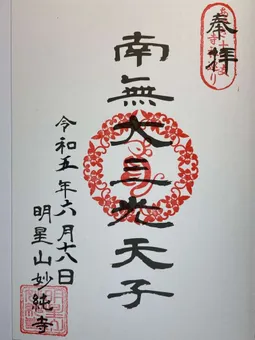 奉拝
南無大三光天子
令和五年六月十八日
明星山妙純寺